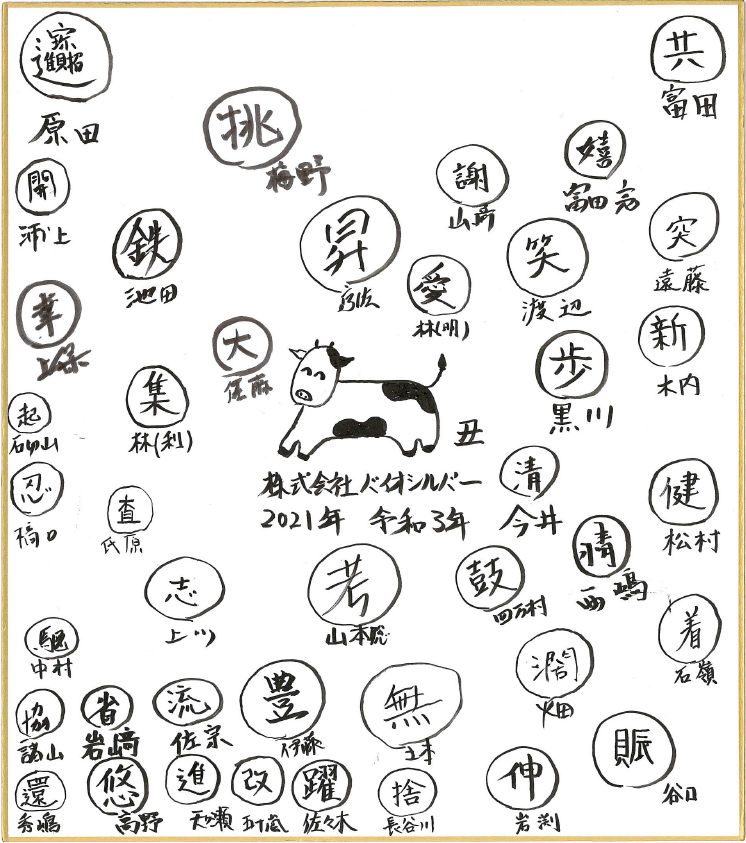 原田
共
富田
挑
梅野
嬉
謝
山崎
開
鉄
池田
昇
笑
渡辺
突
遠藤
愛
林(明)
幸
大
佐藤
新
木内
歩
黒川
集
林(利)
起
石切山
丑
株式会社バイオシルバー
2021年 令和3年
清
今井
健
松村
忍
査
氏原
晴
西嶋
志
上川
考
山本聡
鼓
四万村
着
石嶺
中村
潤
畑
協
諸山
省
岩﨑
流
佐宗
豊
伊藤
無
賑
谷口
還
秀嶋
悠
高野
進
天瀬
改
五十嵐
躍
佐々木
捨
長谷川
伸
岩渕